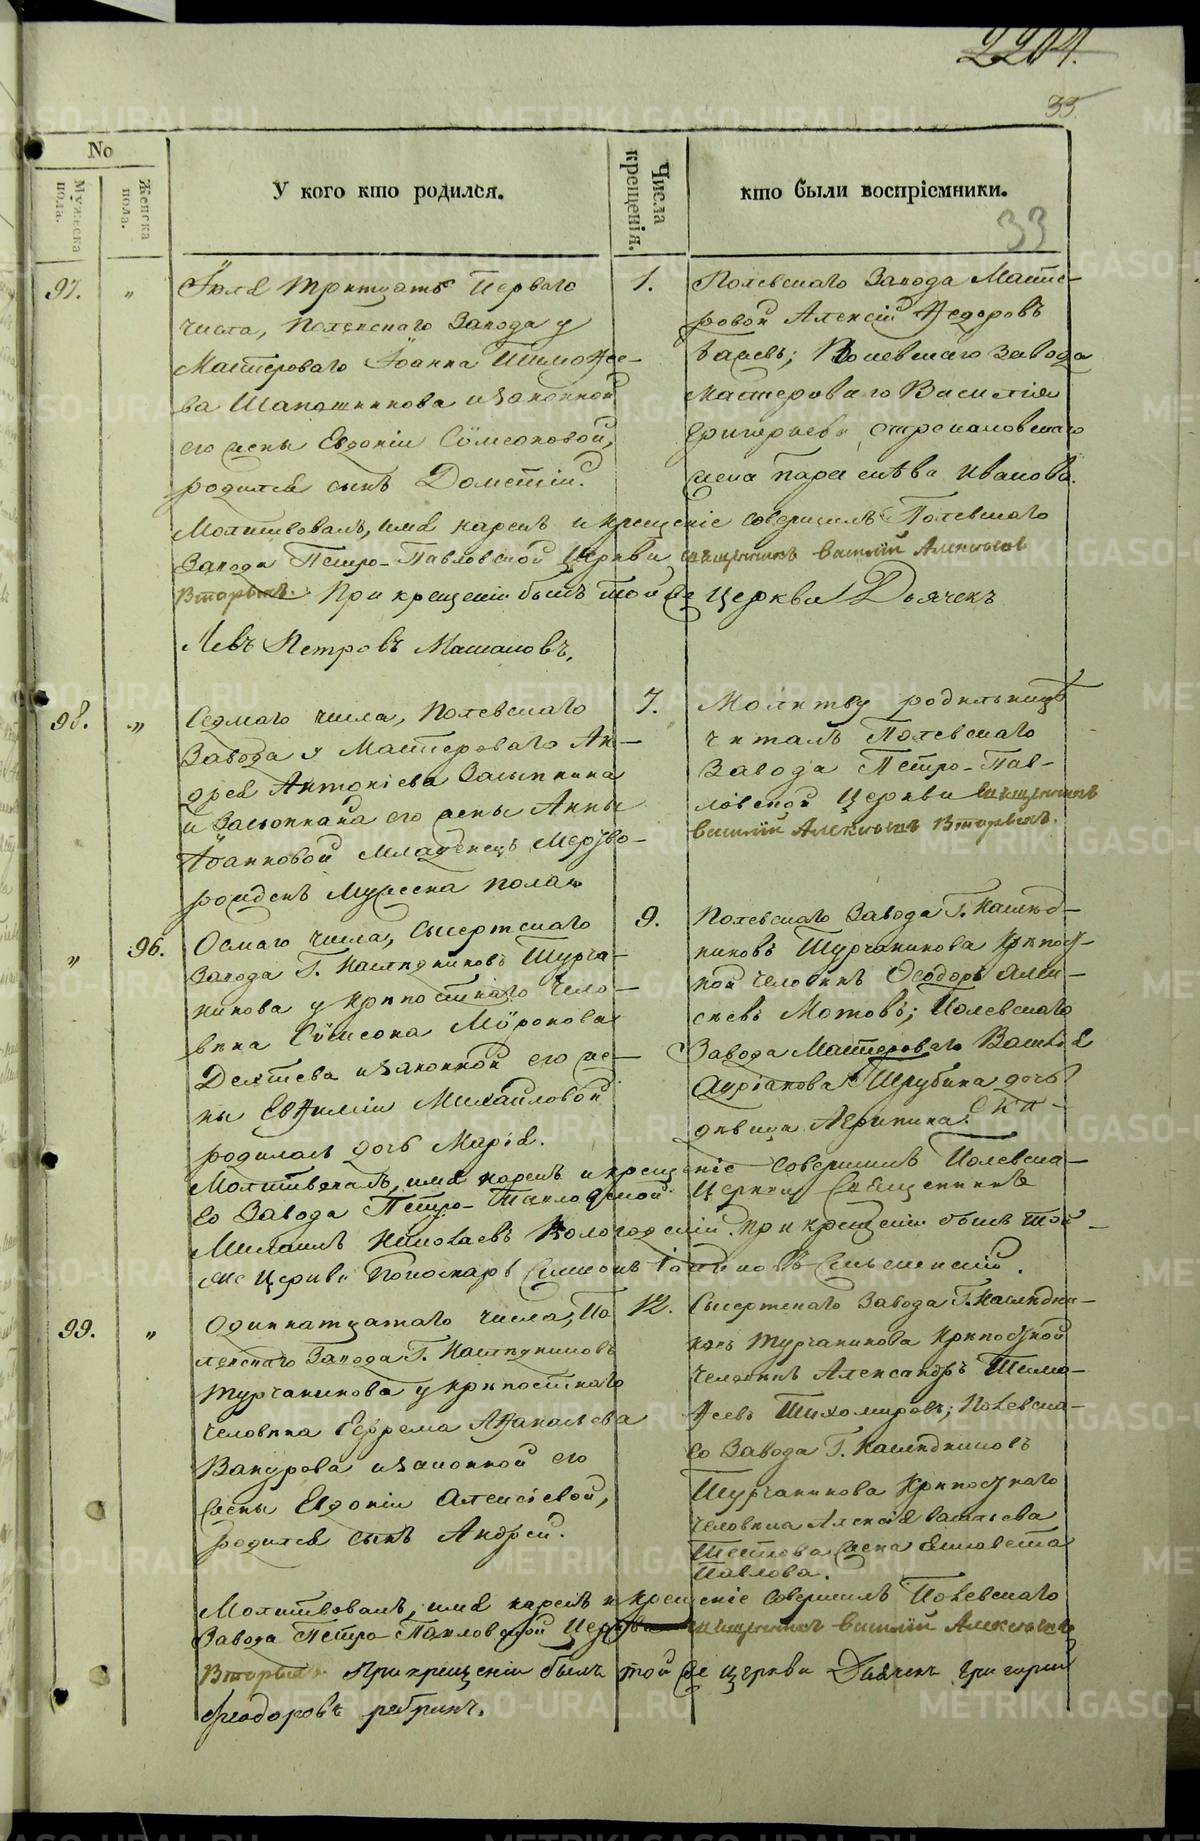 2204.
33
33
No
Мужеска пола.
Женска пола.
У кого кто родился.
Числа крещенія.
кто были воспріемники.
97.
"
Іюля тритцать Перваго
числа, Полевскаго Завода у
Мастероваго Іоанна Тимофее-
ва Шапошникова и Законной
его жены Евдокіи Сѵмеоновой,
родился сынъ Дометій.
1.
Полевскаго Завода Масте-
ровой Алексій Федоровъ
Полевскаго Завода
Мастероваго Василія
Григорьева
жена Параскѣва Иванова.
Молитвовалъ, имя нарекъ и крещеніе совершилъ Полевскаго
Завода Петро-Павловской Церкви священникъ Василій Алексѣевъ
Вторыхъ. При крещеніи былъ той же Церкви Дьячекъ
Левъ Петровъ Машановъ.
98.
"
Седмаго числа, Полевскаго
Завода у Мастероваго Ан-
дрея Антоніева Засыпкина
и Законной его жены Анны
Іоанновой Младенецъ Мертво-
рожденъ Мужеска пола.
7.
Молитву родильницѣ
читалъ Полевскаго
Завода Петро-Пав-
ловской Церкви священникъ
Василій Алексѣевъ Вторыхъ.
"
96.
Осмаго числа, Сысертскаго
Завода Г. Наслѣдниковъ Турча-
нинова у крѣпостнаго чело-
вѣка Сѵмеона Мѵронова
Дехтева и Законной его же-
ны Евфиміи Михайловой
родилась дочь Марія.
9.
Полевскаго Завода Г. Наслѣд-
никовъ Турчанинова Крѣпост-
ной человѣкъ Ѳеодоръ Алек-
сѣевъ Мотовъ; Полевскаго
Завода Мастероваго Василія
Адріанова Шрубина дочь
дѣвица Агрипина.
Молитвовалъ, имя нарекъ и крещеніе совершилъ Полевска-
го Завода Петро-Павловской Церкви Священникъ
Михаилъ Николаевъ Вологодскій. При крещеніи былъ той-
же Церкви Пономарь Симеонъ
99.
"
Одиннатцатаго числа, По
левскаго Завода Г. Наслѣдниковъ
Турчанинова у крѣпостнаго
человѣка Ефрема Афанасьева
Вакурова и Законной его
жены Евдокіи Алексіевой,
родился сынъ Андрей.
12.
Сысертскаго Завода Г. Наслѣдни-
ковъ Турчанинова Крѣпостной
человѣкъ Александръ Тимо-
ѳеевъ Тихомировъ; Полевска-
го Завода Г. Наслѣдниковъ
Турчанинова Крѣпостнаго
человѣка Алексія Васильева
жена Елисовета
Павлова.
Молитвовалъ, имя нарекъ и крещеніе совершилъ Полевскаго
Завода Петро-Павловской Церкви священникъ Василій Алексѣевъ
Вторыхъ. При крещеніи былъ той же Церкви Дьячекъ Григорій
Феодоровъ Рябинъ.
METRIKI.GASO-URAL.RU